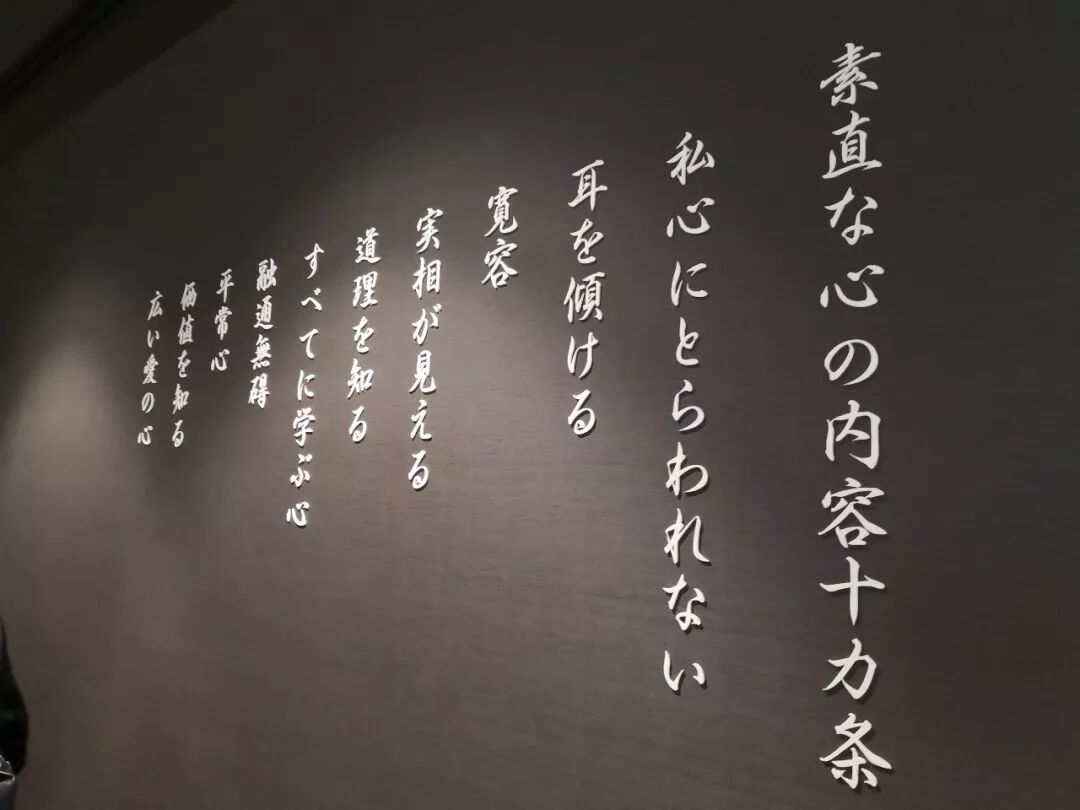 素直な心の内容十カ条
私心にとらわれない
耳を傾ける
寛容
実相が見える
道理を知る
すべてに学ぶ心
融通無碍
平常心
価値を知る
広い愛の心